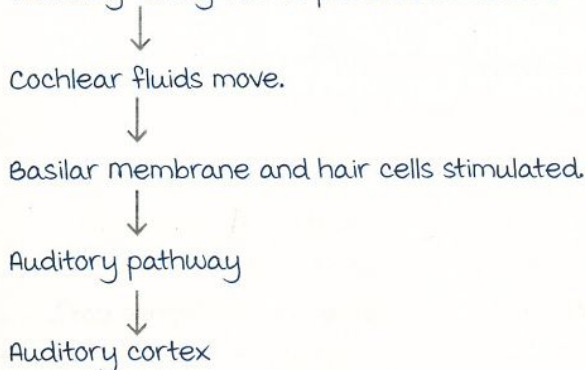 Cochlear fluids move.
Basilar membrane and hair cells stimulated.
Auditory pathway
Auditory cortex